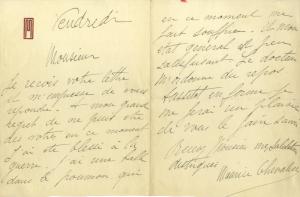 Vendredi
Monsieur
Je reçois votre lettre
et m'empresse de vous
répondre. A mon grand
regret je ne puis être
des votres en ce moment
j'ai été blessé à la
guerre. J'ai une balle
dans le poumon qui
en ce moment me
fait souffrir. Mon
état général est bien
satisfaisant. Le docteur
m'ordonne du repos
Aussitôt en forme je
me ferai un plaisir
de vous le faire savoir
Recevez Monsieur mes Salutations
distinguées
Maurice Chevalier